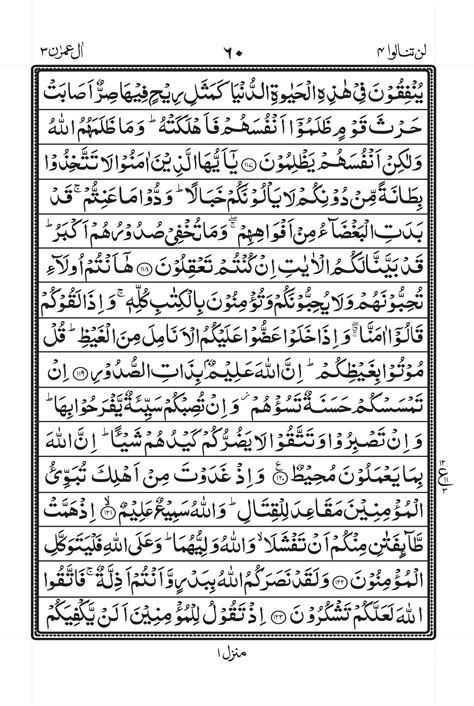 لن تنالوا ۴ ٦٠ اٰل عمرٰن ۳
یُنْفِقُوْنَ فِیْ هٰذِهِ الْحَیٰوةِ الدُّنْیَا كَمَثَلِ رِیْحٍ فِیْهَا صِرٌّ اَصَابَتْ
حَرْثَ قَوْمٍ ظَلَمُوْۤا اَنْفُسَهُمْ فَاَهْلَكَتْهُ ؕ وَمَا ظَلَمَهُمُ اللّٰهُ
وَلٰكِنْ اَنْفُسَهُمْ یَظْلِمُوْنَ ﴿۱۱۷﴾ یٰۤاَیُّهَا الَّذِیْنَ اٰمَنُوْا لَا تَتَّخِذُوْا
بِطَانَةً مِّنْ دُوْنِكُمْ لَا یَاْلُوْنَكُمْ خَبَالًا ؕ وَدُّوْا مَا عَنِتُّمْ ۚ قَدْ
بَدَتِ الْبَغْضَآءُ مِنْ اَفْوَاهِهِمْ ۖۚ وَمَا تُخْفِیْ صُدُوْرُهُمْ اَكْبَرُ ؕ
قَدْ بَیَّنَّا لَكُمُ الْاٰیٰتِ اِنْ كُنْتُمْ تَعْقِلُوْنَ ﴿۱۱۸﴾ هٰۤاَنْتُمْ اُولَآءِ
تُحِبُّوْنَهُمْ وَلَا یُحِبُّوْنَكُمْ وَتُؤْمِنُوْنَ بِالْكِتٰبِ كُلِّهٖ ۚ وَاِذَا لَقُوْكُمْ
قَالُوْۤا اٰمَنَّا ۖۗ وَاِذَا خَلَوْا عَضُّوْا عَلَیْكُمُ الْاَنَامِلَ مِنَ الْغَیْظِ ؕ قُلْ
مُوْتُوْا بِغَیْظِكُمْ ؕ اِنَّ اللّٰهَ عَلِیْمٌۢ بِذَاتِ الصُّدُوْرِ ﴿۱۱۹﴾ اِنْ
تَمْسَسْكُمْ حَسَنَةٌ تَسُؤْهُمْ ؗ وَاِنْ تُصِبْكُمْ سَیِّئَةٌ یَّفْرَحُوْا بِهَا ؕ
وَاِنْ تَصْبِرُوْا وَتَتَّقُوْا لَا یَضُرُّكُمْ كَیْدُهُمْ شَیْـًٔا ؕ اِنَّ اللّٰهَ
بِمَا یَعْمَلُوْنَ مُحِیْطٌ ﴿۱۲۰﴾ وَاِذْ غَدَوْتَ مِنْ اَهْلِكَ تُبَوِّئُ
۱۲ ع ۱۱ ۳
الْمُؤْمِنِیْنَ مَقَاعِدَ لِلْقِتَالِ ؕ وَاللّٰهُ سَمِیْعٌ عَلِیْمٌ ﴿۱۲۱﴾ اِذْ هَمَّتْ
طَّآىِٕفَتٰنِ مِنْكُمْ اَنْ تَفْشَلَا ۙ وَاللّٰهُ وَلِیُّهُمَا ؕ وَعَلَى اللّٰهِ فَلْیَتَوَكَّلِ
الْمُؤْمِنُوْنَ ﴿۱۲۲﴾ وَلَقَدْ نَصَرَكُمُ اللّٰهُ بِبَدْرٍ وَّاَنْتُمْ اَذِلَّةٌ ۚ فَاتَّقُوا
اللّٰهَ لَعَلَّكُمْ تَشْكُرُوْنَ ﴿۱۲۳﴾ اِذْ تَقُوْلُ لِلْمُؤْمِنِیْنَ اَلَنْ یَّكْفِیَكُمْ
منزل ۱